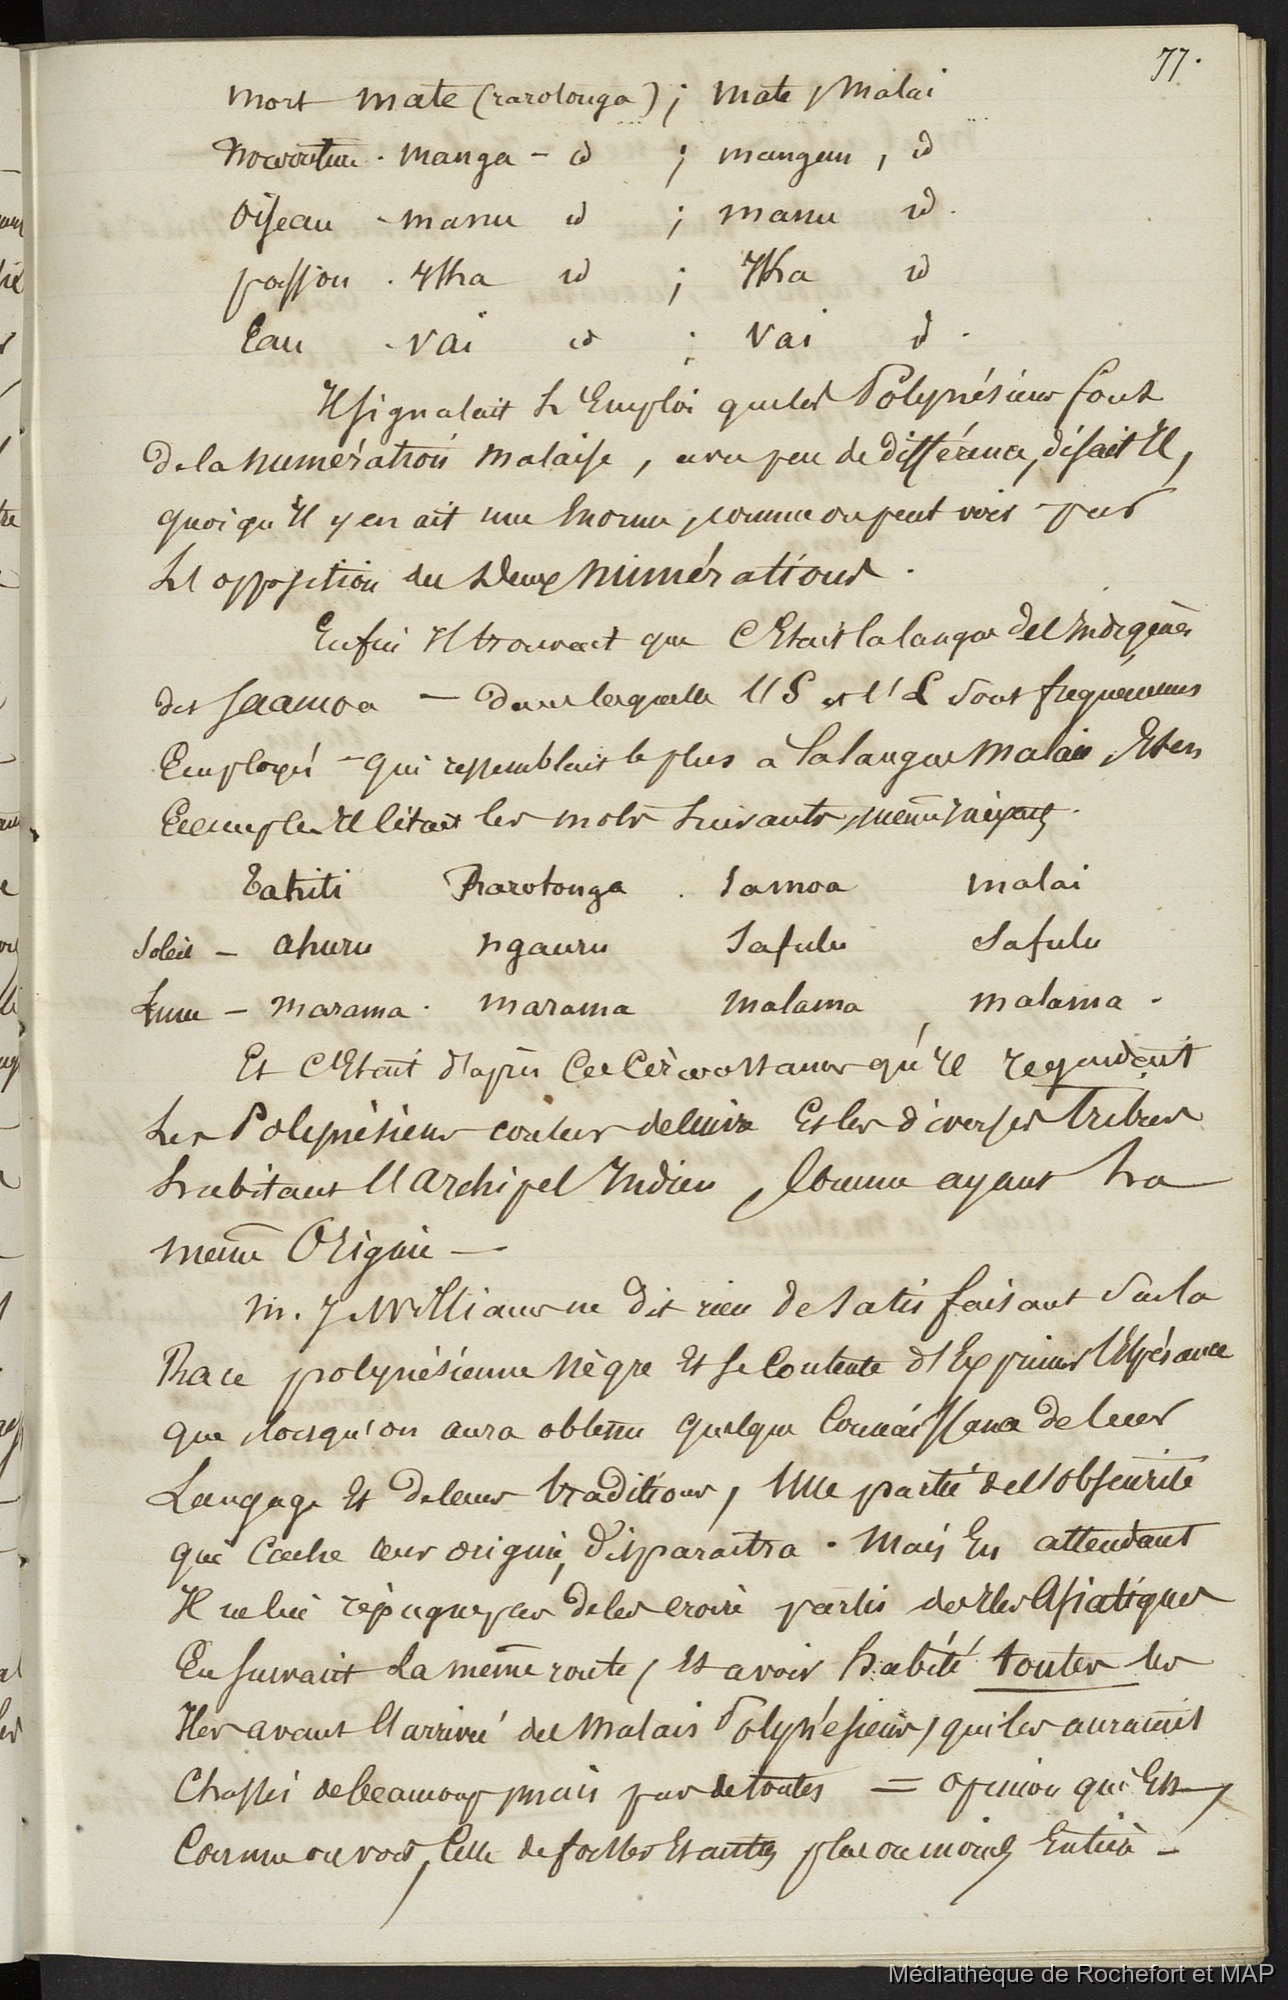 77.
Mort mate (rarotonga) ; mate, Malai
Nourriture . manga - id ; mangan, id
Oiseau - manu id ; manu id.
poisson . Ika id ; Ika id
Eau - vai id ; vai id.
Il signalait l'Emploi que les Polynésiens font
de la numération malaise, avec peu de différence, disait Il,
quoiqu'Il y en ait une Énorme, comme on peut voir par
L'opposition des Deux numérations.
Enfin Il trouvait que C'Etait la langue des Indigènes
des Saamoa — dans laquelle l'S et l'L sont fréquemment
Employés - qui ressemblait le plus à la langue malaie, Et en
Exemples Il citait les mots suivants,
Tahiti Rarotonga . Samoa malai
Soleil - ahuru ngauru Safulu Safulu
Lune - marama . marama malama malama .
Et C'Etait d'après Ces Circonstances qu'Il regardait
Les Polynésiens couleur de cuivre Et les diverses Tribus
habitant l'Archipel Indien, Comme ayant La
même Origine —
M. J Williams ne dit rien de satisfaisant sur la
Race polynésienne nègre Et se Contente d'Exprimer l'Espérance
que lorsqu'on aura obtenu quelque Connaissance de leur
Langage Et de leurs traditions, Une partie de l'obscurité
qui Cache leur origine, disparaitra . Mais En attendant
Il ne lui répugne pas de les croire partis des Iles Asiatiques
En suivant la même route, Et avoir habité toutes les
Iles avant l'arrivée des Malais Polynésiens, qui les auraient
Chassés de beaucoup mais pas de toutes = opinion qui Est,
Comme on voit, Celle de Forster Et autres plus ou moins Entière -
Médiathèque de Rochefort et MAP